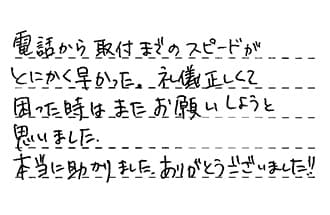 電話から取付までのスピードが
とにかく早かった。礼儀正しくて
困った時はまたお願いしようと
思いました.
本当に助かりました.ありがとうございました!!